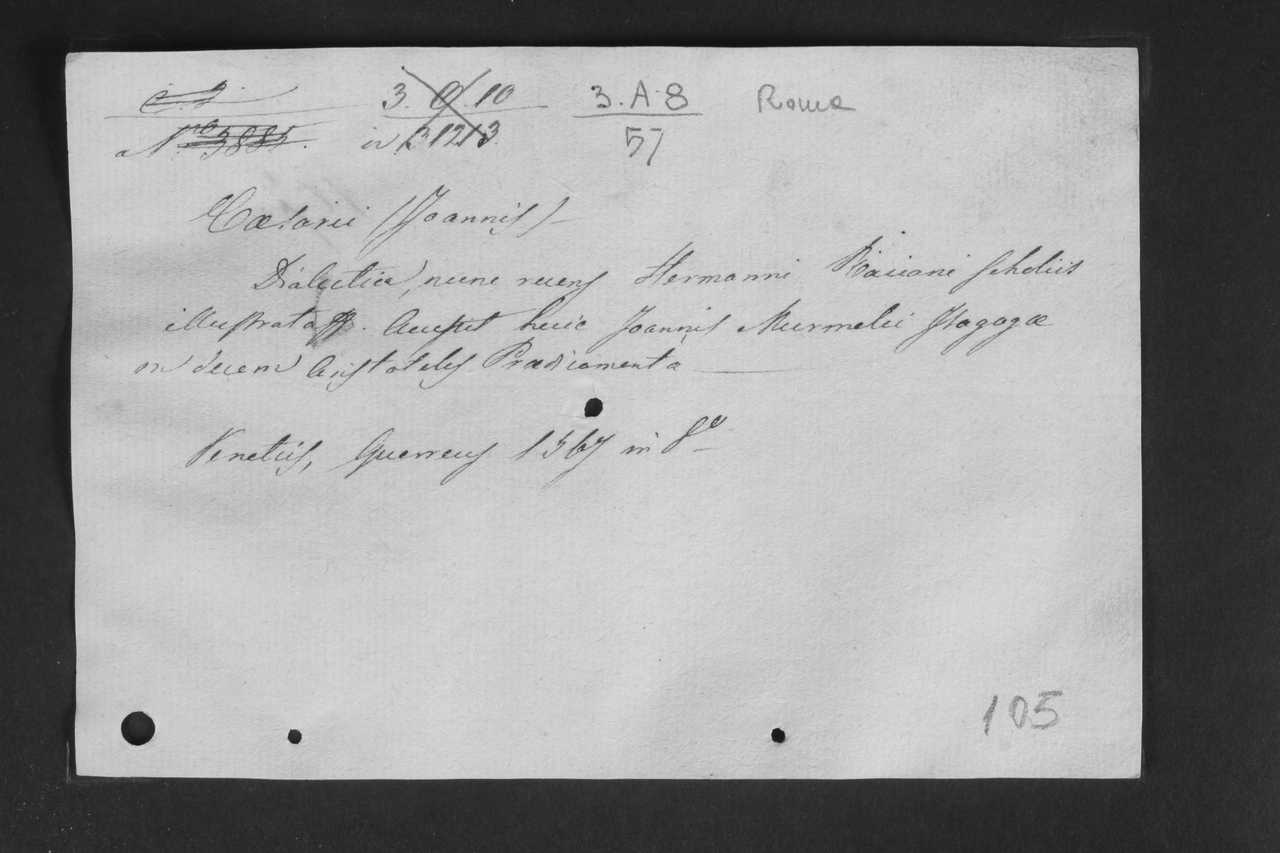 3. O. 10 3. A 8 Roma
a N.ro 3885. 13121 3 57
Cæsarii (Joannis)
Dialectica, nunc recens Hermanni Raiiani scholiis
illustrata &. Accessit huic Joannis Murmelii Isagogæ
in decem Aristotelis Prædicamenta
Venetiis, Guerreus 1567 in 8º
105